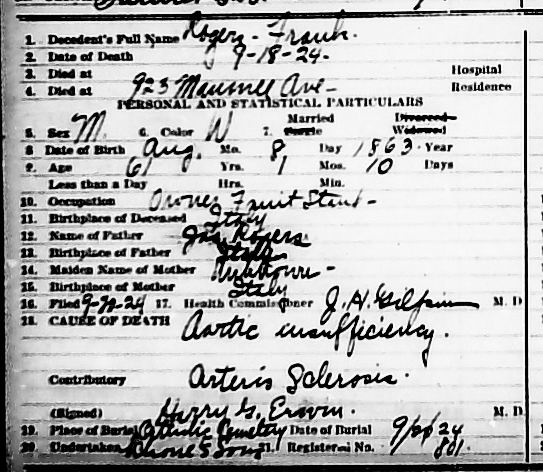 1. Decedent's Full Name Rogers - Frank.
2. Date of Death 9-18-24-
3. Died at Hospital
4. Died at 923 Maumee Ave- Residence
PERSONAL AND STATISTICAL PARTICULARS
Married Divorced
5. Sex M. 6. Color W 7. Widowed
8 Date of Birth Aug. Mo. 8 Day 1863 Year
9. Age 61 Yrs. 1 Mos. 10 Days
Less than a Day Hrs. Min.
10. Occupation Owner Fruit Stand-
11. Birthplace of Deceased Italy
12. Name of Father Jas Rogers
13. Birthplace of Father Italy
14. Maiden Name of Mother Unknown-
15. Birthplace of Mother Italy
16. Filed 24 17. Health Commissioner J. H. Gilpin M. D
18. CAUSE OF DEATH Aortic insufficiency.
Contributory Arterio Sclerosis.
(Signed) Harry G. Erwin. M. D.
19. Place of Burial Catholic Cemetery Date of Burial 24
20. Undertaker Sons 21. Registered No. 801